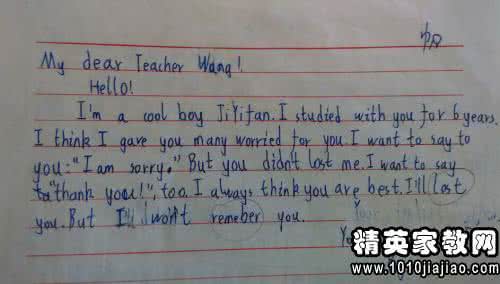 My dear Teacher Wang!
Hello!
I'm a cool boy JiYifan. I studied with you for 6 years.
I think I gave you many worried for you. I want to say to
you: "I am sorry." But you didn't lost me. I want to say
"thank you!", too. I always think you are best. I'll lost
you. But I won't remeber you.
精英家教网
www.1010jiajiao.com